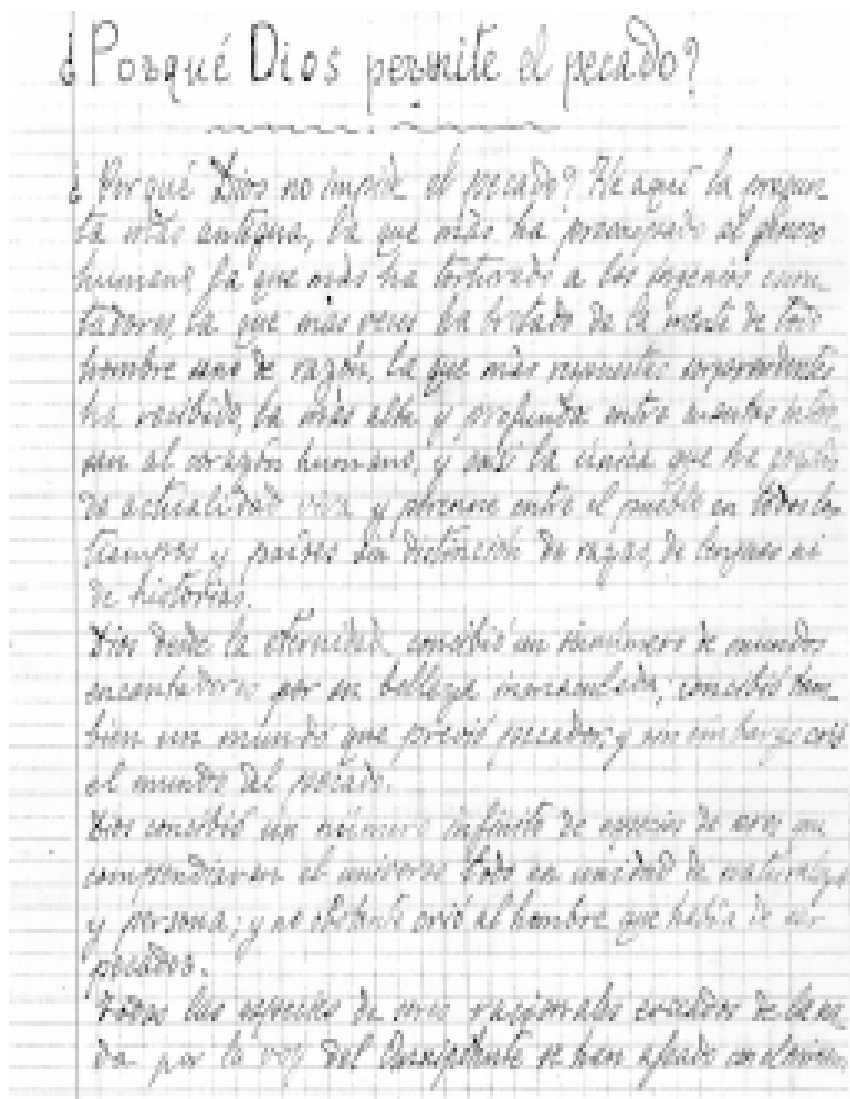 ¿Porqué Dios permite el pecado?
¿Porqué Dios no impide el pecado? He aquí la pregun
ta más antigua, la que más ha preocupado al género
humano, la que más ha torturado a los ingenios
la que mas veces ha brotado de la mente de todo
hombre de razón, la que más respuestas sorprendentes
ha recibido, la más alta y profunda entre cuantas
san al corazón humano, y casi la única que ha gozado
de actualidad viva y perenne entre el pueblo en todos los
tiempos y países sin distinción de razas, de lenguas ni
de historias.
Dios desde la eternidad concibió un sinnúmero de mundos
encantadores por su belleza inmaculada; concibió tam
bién un mundo que previó pecador; y sin embargo creó
el mundo del pecado.
Dios concibió un número infinito de especies de seres que
compendiaran el universo todo en unidad de naturaleza
y persona; y no obstante creó al hombre que había de ser
pecador.
Todas las especies de seres racionales creados de la na
da por la voz del Omnipotente se han afeado con el